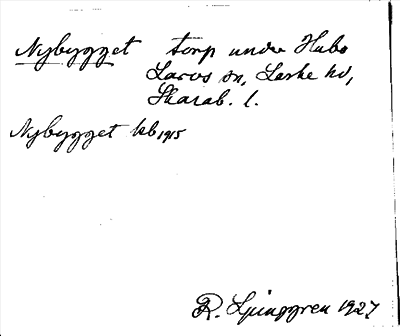 Nybygget torp under Habo
Larvs sn, Laske hd,
Skarab. l.
Nybygget kb 1915
R. Ljunggren 1927